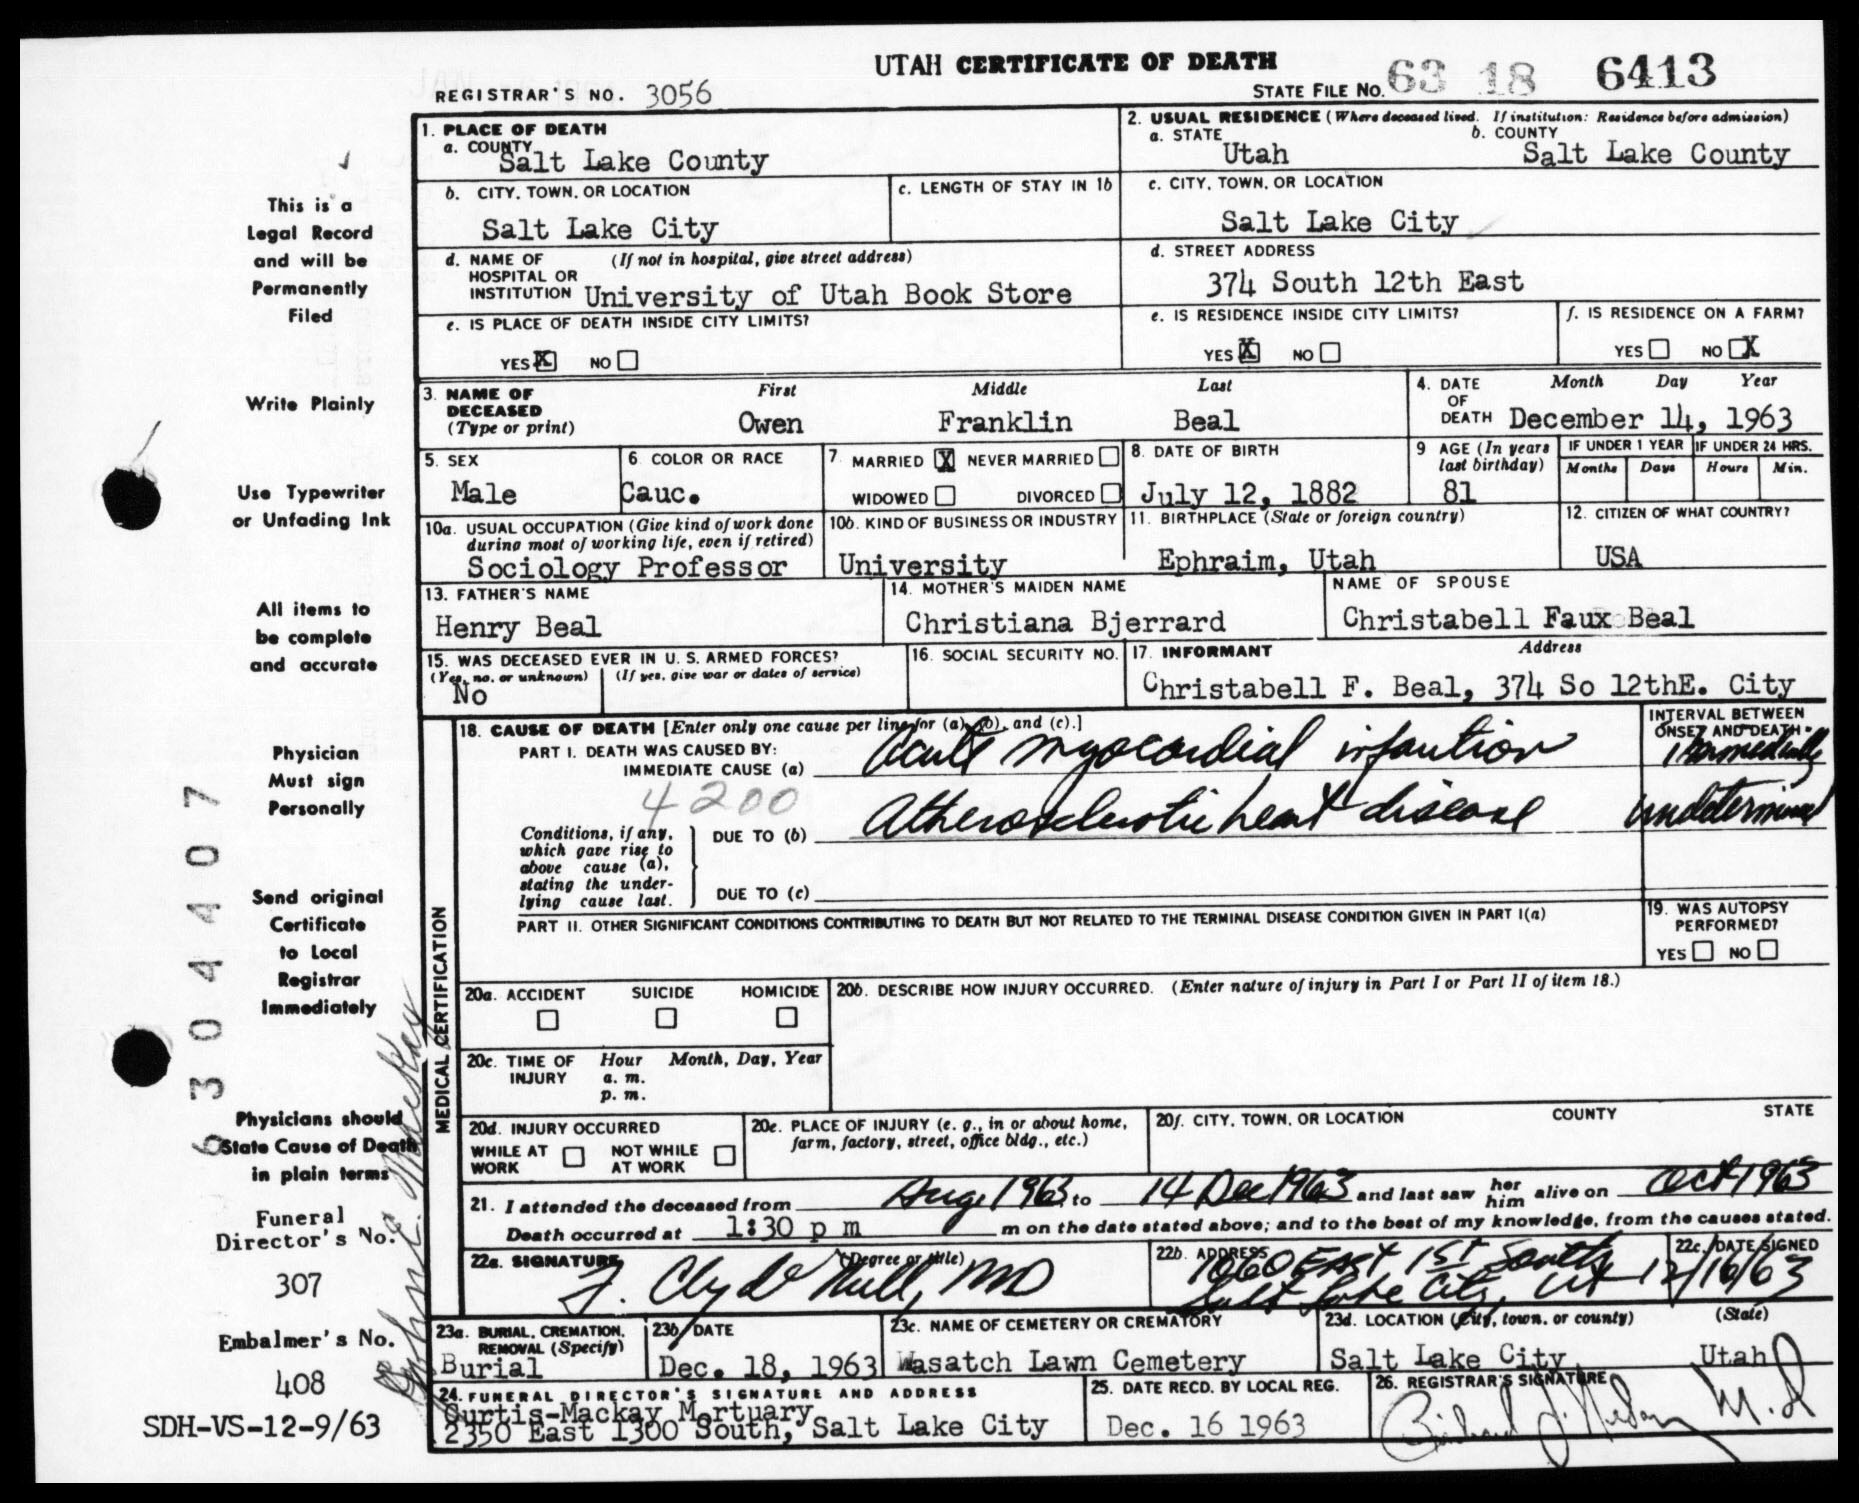 UTAH CERTIFICATE OF DEATH
REGISTRAR'S NO. 3056
STATE FILE NO. 63 18 6413
1. PLACE OF DEATH
a. COUNTY
Salt Lake County
2. USUAL RESIDENCE (Where deceased lived. If institution: Residence before admission)
a. STATE
Utah
b. COUNTY
Salt Lake County
b. CITY, TOWN, OR LOCATION
Salt Lake City
c. LENGTH OF STAY IN 1b
c. CITY, TOWN, OR LOCATION
Salt Lake City
d. NAME OF (If not in hospital, give street address)
HOSPITAL OR
INSTITUTION University of Utah Book Store
d. STREET ADDRESS
374 South 12th East
e. IS PLACE OF DEATH INSIDE CITY LIMITS?
YES X NO
e. IS RESIDENCE INSIDE CITY LIMITS?
YES X NO
f. IS RESIDENCE ON A FARM?
YES NO X
3. NAME OF DECEASED (Type or print)
First Middle Last
Owen Franklin Beal
4. DATE OF DEATH
Month Day Year
December 14, 1963
5. SEX
Male
6. COLOR OR RACE
Cauc.
7. MARRIED X NEVER MARRIED
WIDOWED DIVORCED
8. DATE OF BIRTH
July 12, 1882
9 AGE (In years last birthday)
81
IF UNDER 1 YEAR
Months Days
IF UNDER 24 HRS.
Hours Min.
10a. USUAL OCCUPATION (Give kind of work done
during most of working life, even if retired)
Sociology Professor
10b. KIND OF BUSINESS OR INDUSTRY
University
11. BIRTHPLACE (State or foreign country)
Ephraim, Utah
12. CITIZEN OF WHAT COUNTRY?
USA
13. FATHER'S NAME
Henry Beal
14. MOTHER'S MAIDEN NAME
Christiana Bjerrard
NAME OF SPOUSE
Christabell Faux Beal
15. WAS DECEASED EVER IN U. S. ARMED FORCES?
(Yes, no, or unknown) (If yes, give war or dates of service)
No
16. SOCIAL SECURITY NO.
17. INFORMANT Address
Christabell F. Beal, 374 So 12thE. City
MEDICAL CERTIFICATION
18. CAUSE OF DEATH [Enter only one cause per line for (a), (b), and (c).]
PART I. DEATH WAS CAUSED BY:
IMMEDIATE CAUSE (a) Acute myocardial infarction
INTERVAL BETWEEN
ONSET AND DEATH
Immediately
4200
Conditions, if any,
which gave rise to
above cause (a),
stating the under-
lying cause last.
DUE TO (b) Atherosclerotic heart disease
undetermined
DUE TO (c)
PART II. OTHER SIGNIFICANT CONDITIONS CONTRIBUTING TO DEATH BUT NOT RELATED TO THE TERMINAL DISEASE CONDITION GIVEN IN PART I(a)
19. WAS AUTOPSY
PERFORMED?
YES NO
20a. ACCIDENT SUICIDE HOMICIDE
20b. DESCRIBE HOW INJURY OCCURRED. (Enter nature of injury in Part I or Part II of item 18.)
20c. TIME OF INJURY
Hour Month, Day, Year
a. m.
p. m.
20d. INJURY OCCURRED
WHILE AT WORK NOT WHILE AT WORK
20e. PLACE OF INJURY (e. g., in or about home,
farm, factory, street, office bldg., etc.)
20f. CITY, TOWN, OR LOCATION COUNTY STATE
21. I attended the deceased from Aug. 1963 to 14 Dec 1963 and last saw her him alive on Oct 1963
Death occurred at 1:30 p m m on the date stated above; and to the best of my knowledge, from the causes stated.
22a. SIGNATURE (Degree or title)
J. Clyde Hull, MD
22b. ADDRESS
1060 East 1st South
Salt Lake City, Ut
22c. DATE SIGNED
12/16/63
23a. BURIAL, CREMATION,
REMOVAL (Specify)
Burial
23b. DATE
Dec. 18, 1963
23c. NAME OF CEMETERY OR CREMATORY
Wasatch Lawn Cemetery
23d. LOCATION (City, town, or county) (State)
Salt Lake City Utah
24. FUNERAL DIRECTOR'S SIGNATURE AND ADDRESS
Curtis-Mackay Mortuary
2350 East 1300 South, Salt Lake City
25. DATE RECD. BY LOCAL REG.
Dec. 16 1963
26. REGISTRAR'S SIGNATURE
M.D
This is a
Legal Record
and will be
Permanently
Filed
Write Plainly
Use Typewriter
or Unfading Ink
All items to
be complete
and accurate
Physician
Must sign
Personally
Send original
Certificate
to Local
Registrar
Immediately
Physicians should
State Cause of Death
in plain terms
Funeral
Director's No.
307
Embalmer's No.
408
SDH-VS-12-9/63
6304407